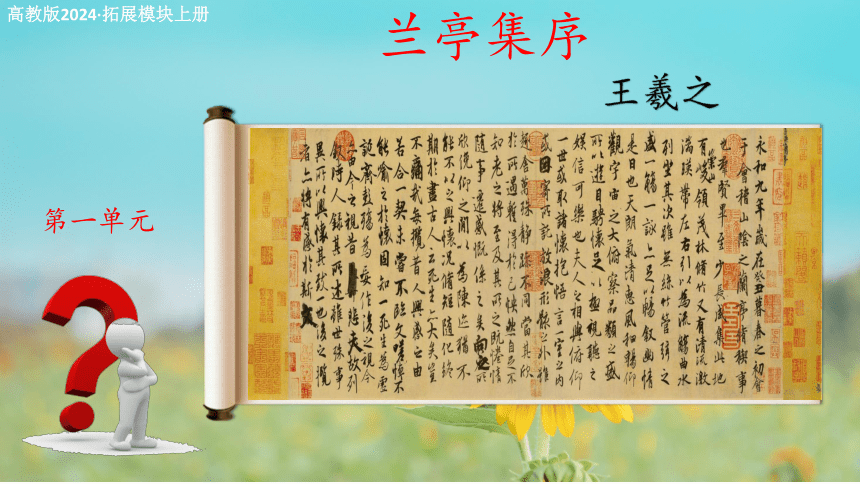 高教版2024·拓展模块上册
兰亭集序
王羲之
第一单元
永和九年歲在癸丑暮春之初會
于會稽山陰之蘭亭脩稧事
也羣賢畢至少長咸集此地
有崇山峻領茂林脩竹又有清流激
湍暎帶左右引以為流觴曲水
列坐其次雖無絲竹管弦之
盛一觴一詠亦足以暢敘幽情
是日也天朗氣清惠風和暢仰
觀宇宙之大俯察品類之盛
所以遊目騁懷足以極視聽之
娛信可樂也夫人之相與俯仰
一世或取諸懷抱悟言一室之內
或因寄所託放浪形骸之外雖
趣舍萬殊靜躁不同當其欣
於所遇蹔得於己怏然自足不
知老之將至及其所之既惓情
隨事遷感慨係之矣向之所
欣俛仰之閒以為陳迹猶不
能不以之興懷況脩短隨化終
期於盡古人云死生亦大矣豈
不痛哉每攬昔人興感之由
若合一契未嘗不臨文嗟悼不
能喻之於懷固知一死生為虛
誕齊彭殤為妄作後之視今
亦由今之視昔悲夫故列
敘時人錄其所述雖世殊事
異所以興懷其致一也後之攬
者亦將有感於斯文